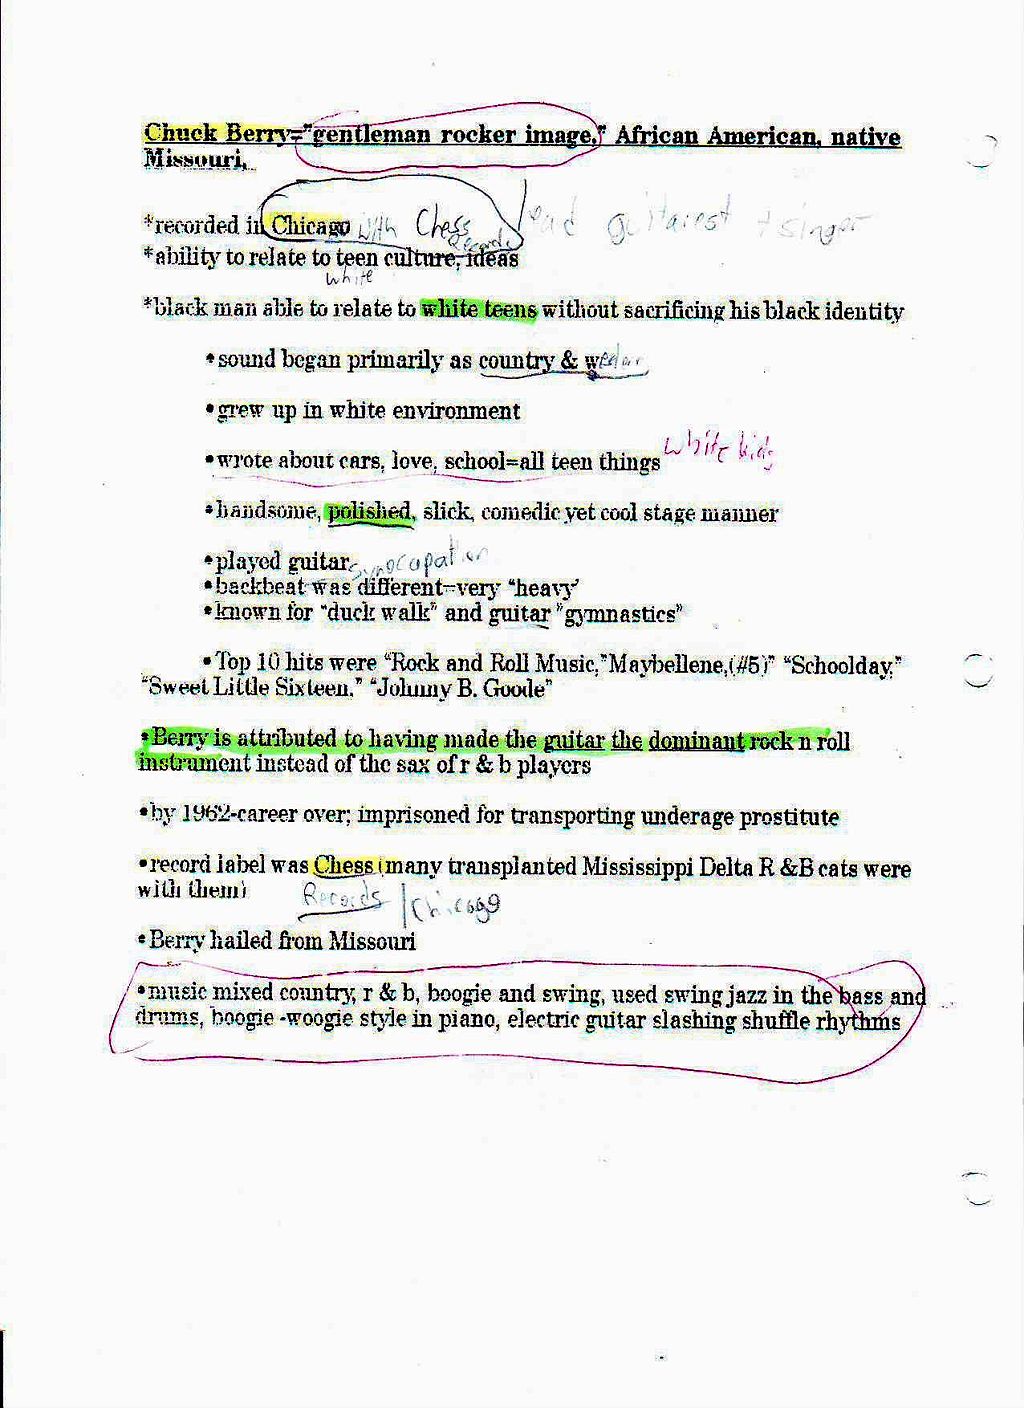 Chuck Berry="gentleman rocker image," African American, native
Missouri,
*recorded in Chicago with Chess Records lead guitarest + singer
*ability to relate to teen culture, ideas
white
*black man able to relate to white teens without sacrificing his black identity
•sound began primarily as country & w
•grew up in white environment
•wrote about cars, love, school=all teen things white kids
•handsome, polished, slick, comedic yet cool stage manner
•played guitar
•backbeat was different–very "heavy"
•known for "duck walk" and guitar "gymnastics"
•Top 10 hits were "Rock and Roll Music,"Maybellene,(#5)" "Schoolday,"
"Sweet Little Sixteen," "Johnny B. Goode"
•Berry is attributed to having made the guitar the dominant rock n roll
instrument instead of the sax of r & b players
•by 1962-career over; imprisoned for transporting underage prostitute
•record label was Chess (many transplanted Mississippi Delta R &B cats were
with them)
Records / Chicago
•Berry hailed from Missouri
•music mixed country, r & b, boogie and swing, used swing jazz in the bass and
drums, boogie -woogie style in piano, electric guitar slashing shuffle rhythms